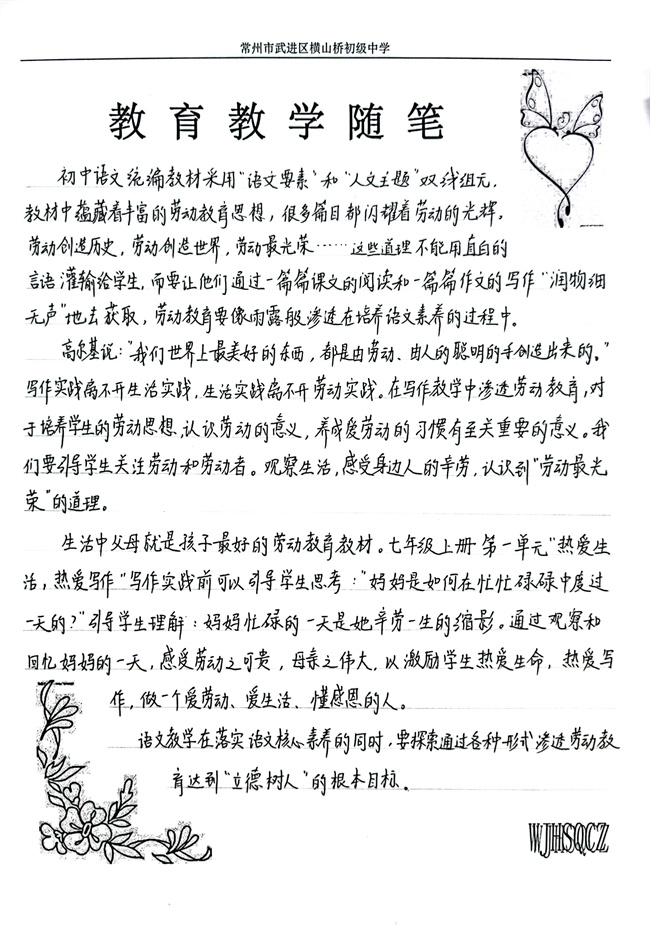 常州市武进区横山桥初级中学
教育教学随笔
初中语文统编教材采用“语文要素”和“人文主题”双线组元，
教材中蕴藏着丰富的劳动教育思想，很多篇目都闪耀着劳动的光辉，
劳动创造历史，劳动创造世界，劳动最光荣……这些道理不能用直白的
言语灌输给学生，而要让他们通过一篇篇课文的阅读和一篇篇作文的写作“润物细
无声”地去获取，劳动教育要像雨露般渗透在培养语文素养的过程中。
高尔基说：“我们世界上最美好的东西，都是由劳动、由人的聪明的手创造出来的。”
写作实践离不开生活实践，生活实践离不开劳动实践。在写作教学中渗透劳动教育，对
于培养学生的劳动思想、认识劳动的意义，养成爱劳动的习惯有至关重要的意义。我
们要引导学生关注劳动和劳动者。观察生活，感受身边人的辛劳，认识到“劳动最光
荣”的道理。
生活中父母就是孩子最好的劳动教育教材。七年级上册第一单元“热爱生
活，热爱写作”写作实践前可以引导学生思考：“妈妈是如何在忙忙碌碌中度过
一天的？”引导学生理解：妈妈忙碌的一天是她辛劳一生的缩影。通过观察和
回忆妈妈的一天，感受劳动之可贵，母亲之伟大，以激励学生热爱生命，热爱写
作，做一个爱劳动、爱生活、懂感恩的人。
语文教学在落实语文核心素养的同时，要探索通过各种形式渗透劳动教
育达到“立德树人”的根本目标。
WJHSQCZ